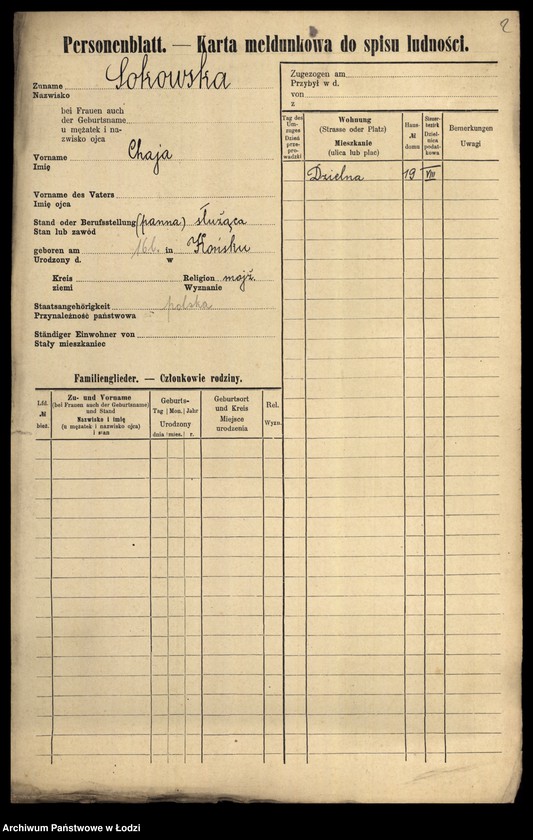 2
Personenblatt. — Karta meldunkowa do spisu ludności.
Zuname Sokowska
Nazwisko
bei Frauen auch
der Geburtsname
u mężatek i na-
zwisko ojca
Vorname Chaja
Imię
Vorname des Vaters
Imię ojca
Stand oder Berufsstellung (panna) służąca
Stan lub zawód
geboren am 16 l. in Końsku
Urodzony d. w
Kreis Religion mojż.
ziemi Wyznanie
Staatsangehörigkeit polska
Przynależność państwowa
Ständiger Einwohner von
Stały mieszkaniec
Familienglieder. — Członkowie rodziny.
Lfd. № bież.
Zu- und Vorname
(bei Frauen auch der Geburtsname)
und Stand
Nazwisko i imię
(u mężatek i nazwisko ojca)
i stan
Geburts-
Tag Mon. Jahr
Urodzony
dnia mies. r.
Geburtsort
und Kreis
Miejsce
urodzenia
Rel.
Wyzn.
Zugezogen am
Przybył w d.
von
z
Tag des
Um-
zuges
Dzień
prze-
pro-
wadzki
Wohnung
(Strasse oder Platz)
Mieszkanie
(ulica lub plac)
Haus-
№
domu
Steuer-
bezirk
Dziel-
nica
podat-
kowa
Bemerkungen
Uwagi
Dzielna 19 VIII
Archiwum Państwowe w Łodzi